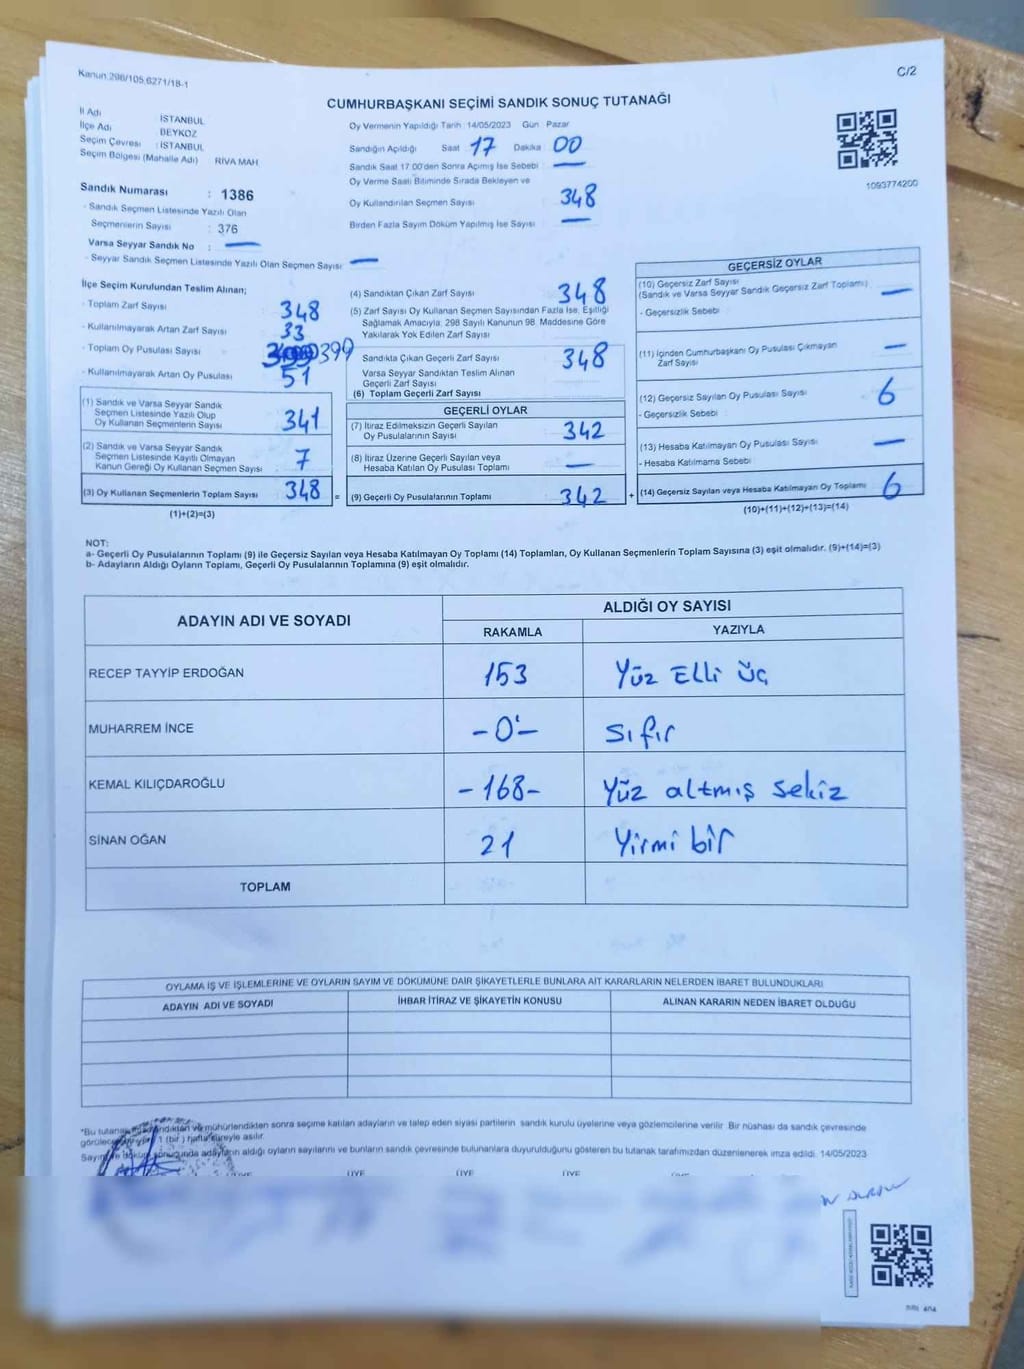 Kanun:298/105,6271/18-1
C/2
CUMHURBAŞKANI SEÇİMİ SANDIK SONUÇ TUTANAĞI
İl Adı : İSTANBUL
İlçe Adı : BEYKOZ
Seçim Çevresi : İSTANBUL
Seçim Bölgesi (Mahalle Adı) RİVA MAH.
Sandık Numarası : 1386
- Sandık Seçmen Listesinde Yazılı Olan
Seçmenlerin Sayısı : 376
Varsa Seyyar Sandık No : —
- Seyyar Sandık Seçmen Listesinde Yazılı Olan Seçmen Sayısı —
Oy Vermenin Yapıldığı Tarih :14/05/2023 Gün : Pazar
Sandığın Açıldığı Saat 17 Dakika 00
Sandık Saat 17:00'den Sonra Açmış İse Sebebi : —
Oy Verme Saati Bitiminde Sırada Bekleyen ve
Oy Kullandırılan Seçmen Sayısı 348
Birden Fazla Sayım Döküm Yapılmış İse Sayısı —
1093774200
İlçe Seçim Kurulundan Teslim Alınan;
- Toplam Zarf Sayısı 348
- Kullanılmayarak Artan Zarf Sayısı 33
- Toplam Oy Pusulası Sayısı 399
- Kullanılmayarak Artan Oy Pusulası 51
(1) Sandık ve Varsa Seyyar Sandık
Seçmen Listesinde Yazılı Olup
Oy Kullanan Seçmenlerin Sayısı 341
(2) Sandık ve Varsa Seyyar Sandık
Seçmen Listesinde Kayıtlı Olmayan
Kanun Gereği Oy Kullanan Seçmen Sayısı 7
(3) Oy Kullanan Seçmenlerin Toplam Sayısı 348 =
(1)+(2)=(3)
(4) Sandıktan Çıkan Zarf Sayısı 348
(5) Zarf Sayısı Oy Kullanan Seçmen Sayısından Fazla İse, Eşitliği
Sağlamak Amacıyla; 298 Sayılı Kanunun 98. Maddesine Göre
Yakılarak Yok Edilen Zarf Sayısı
Sandıkta Çıkan Geçerli Zarf Sayısı 348
Varsa Seyyar Sandıktan Teslim Alınan
Geçerli Zarf Sayısı
(6) Toplam Geçerli Zarf Sayısı
GEÇERLİ OYLAR
(7) İtiraz Edilmeksizin Geçerli Sayılan
Oy Pusulalarının Sayısı 342
(8) İtiraz Üzerine Geçerli Sayılan veya
Hesaba Katılan Oy Pusulası Toplamı —
(9) Geçerli Oy Pusulalarının Toplamı 342 +
GEÇERSİZ OYLAR
(10) Geçersiz Zarf Sayısı
(Sandık ve Varsa Seyyar Sandık Geçersiz Zarf Toplamı) —
- Geçersizlik Sebebi :
(11) İçinden Cumhurbaşkanı Oy Pusulası Çıkmayan
Zarf Sayısı —
(12) Geçersiz Sayılan Oy Pusulası Sayısı 6
- Geçersizlik Sebebi :
(13) Hesaba Katılmayan Oy Pusulası Sayısı —
- Hesaba Katılmama Sebebi :
(14) Geçersiz Sayılan veya Hesaba Katılmayan Oy Toplamı 6
(10)+(11)+(12)+(13)=(14)
NOT:
a- Geçerli Oy Pusulalarının Toplamı (9) ile Geçersiz Sayılan veya Hesaba Katılmayan Oy Toplamı (14) Toplamları, Oy Kullanan Seçmenlerin Toplam Sayısına (3) eşit olmalıdır. (9)+(14)=(3)
b- Adayların Aldığı Oyların Toplamı, Geçerli Oy Pusulalarının Toplamına (9) eşit olmalıdır.
ADAYIN ADI VE SOYADI
ALDIĞI OY SAYISI
RAKAMLA YAZIYLA
RECEP TAYYİP ERDOĞAN 153 Yüz Elli Üç
MUHARREM İNCE -0- Sıfır
KEMAL KILIÇDAROĞLU -168- Yüz altmış sekiz
SİNAN OĞAN 21 Yirmi bir
TOPLAM
OYLAMA İŞ VE İŞLEMLERİNE VE OYLARIN SAYIM VE DÖKÜMÜNE DAİR ŞİKAYETLERLE BUNLARA AİT KARARLARIN NELERDEN İBARET BULUNDUKLARI
ADAYIN ADI VE SOYADI İHBAR İTİRAZ VE ŞİKAYETİN KONUSU ALINAN KARARIN NEDEN İBARET OLDUĞU
*Bu tutanak mühürlendikten sonra seçime katılan adayların ve talep eden siyasi partilerin sandık kurulu üyelerine veya gözlemcilerine verilir. Bir nüshası da sandık çevresinde
1 (bir) hafta süreyle asılır.
adayların aldığı oyların sayılarını ve bunların sandık çevresinde bulunanlara duyurulduğunu gösteren bu tutanak tarafımızdan düzenlenerek imza edildi. 14/05/2023
ÜYE ÜYE ÜYE